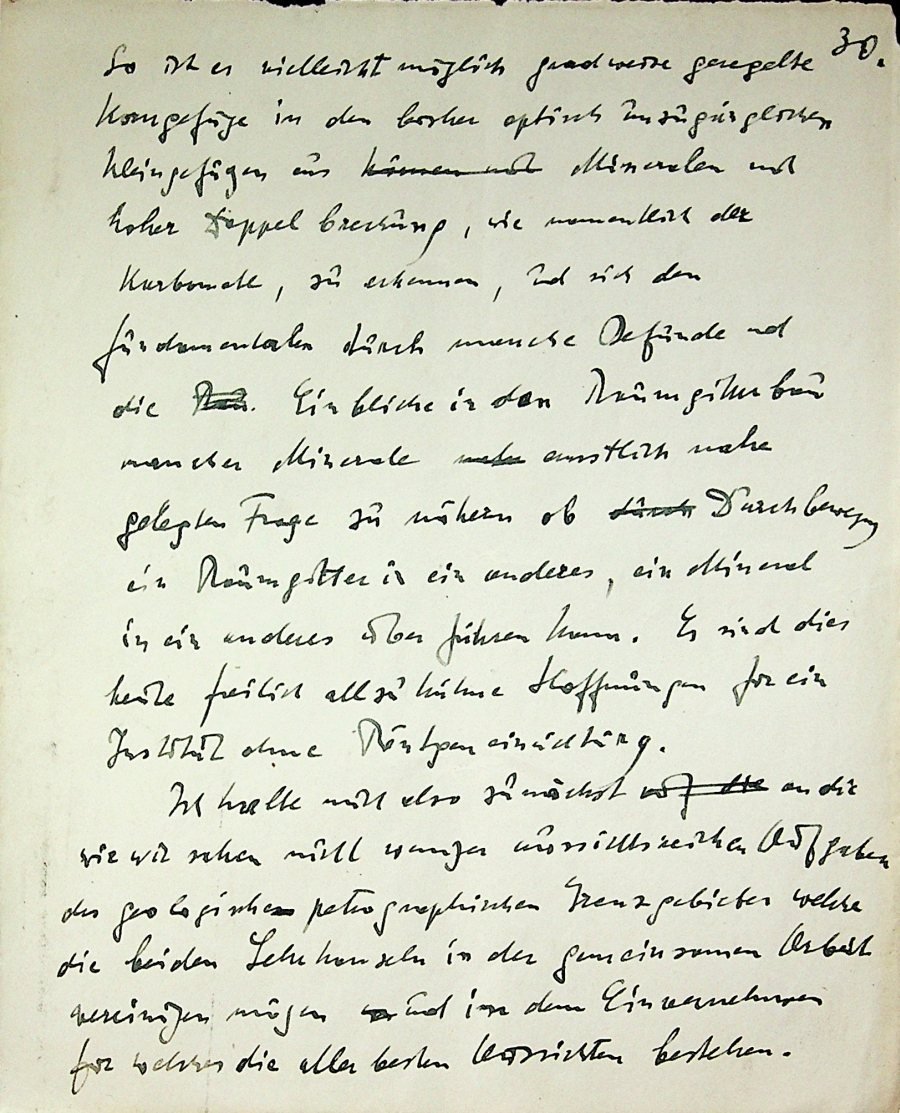 30.
So ist es vielleicht möglich gradweise geregelte
Korngefüge in den bisher optisch unzugänglichen
Kleingefügen aus können und Mineralen mit
hoher Doppelbrechung, wie namentlich der
Karbonate, zu erkennen, und sich den
fundamentalen durch manche Befunde und
die Rau. Einblicke in den Raumgitterbau
mancher Minerale nahe ernstlich nahe
gelegten Frage zu nähern ob durch Durchbewegung
ein Raumgitter in ein anderes, ein Mineral
in ein anderes über führen kann. Es sind dies
heute freilich allzu kühne Hoffnungen für ein
Institut ohne Röntgeneinrichtung.
Ich halte mich also zunächst auf die an die
wie wir sahen nicht weniger aussichtsreichen Aufgaben
des geologischen petrographischen Grenzgebietes welche
die beiden Lehrkanzeln in der gemeinsamen Arbeit
vereinigen mögen und in dem Einvernehmen
für welches die aller besten Aussichten bestehen.